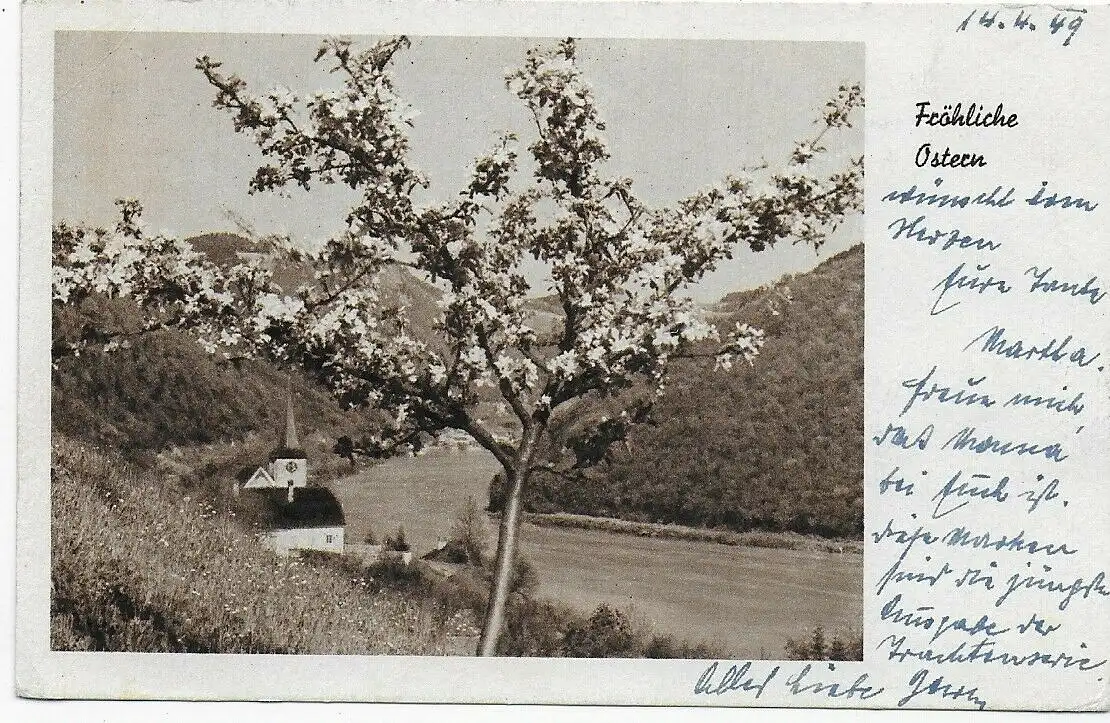 14.4.49
Fröhliche
Ostern
wünscht vom
Herzen
Eure Tante
Martha.
Freue mich,
daß Mama
bei Euch ist.
Diese Marken
sind die jüngste
Ausgabe der
Trachtenserie.
Alles Liebe